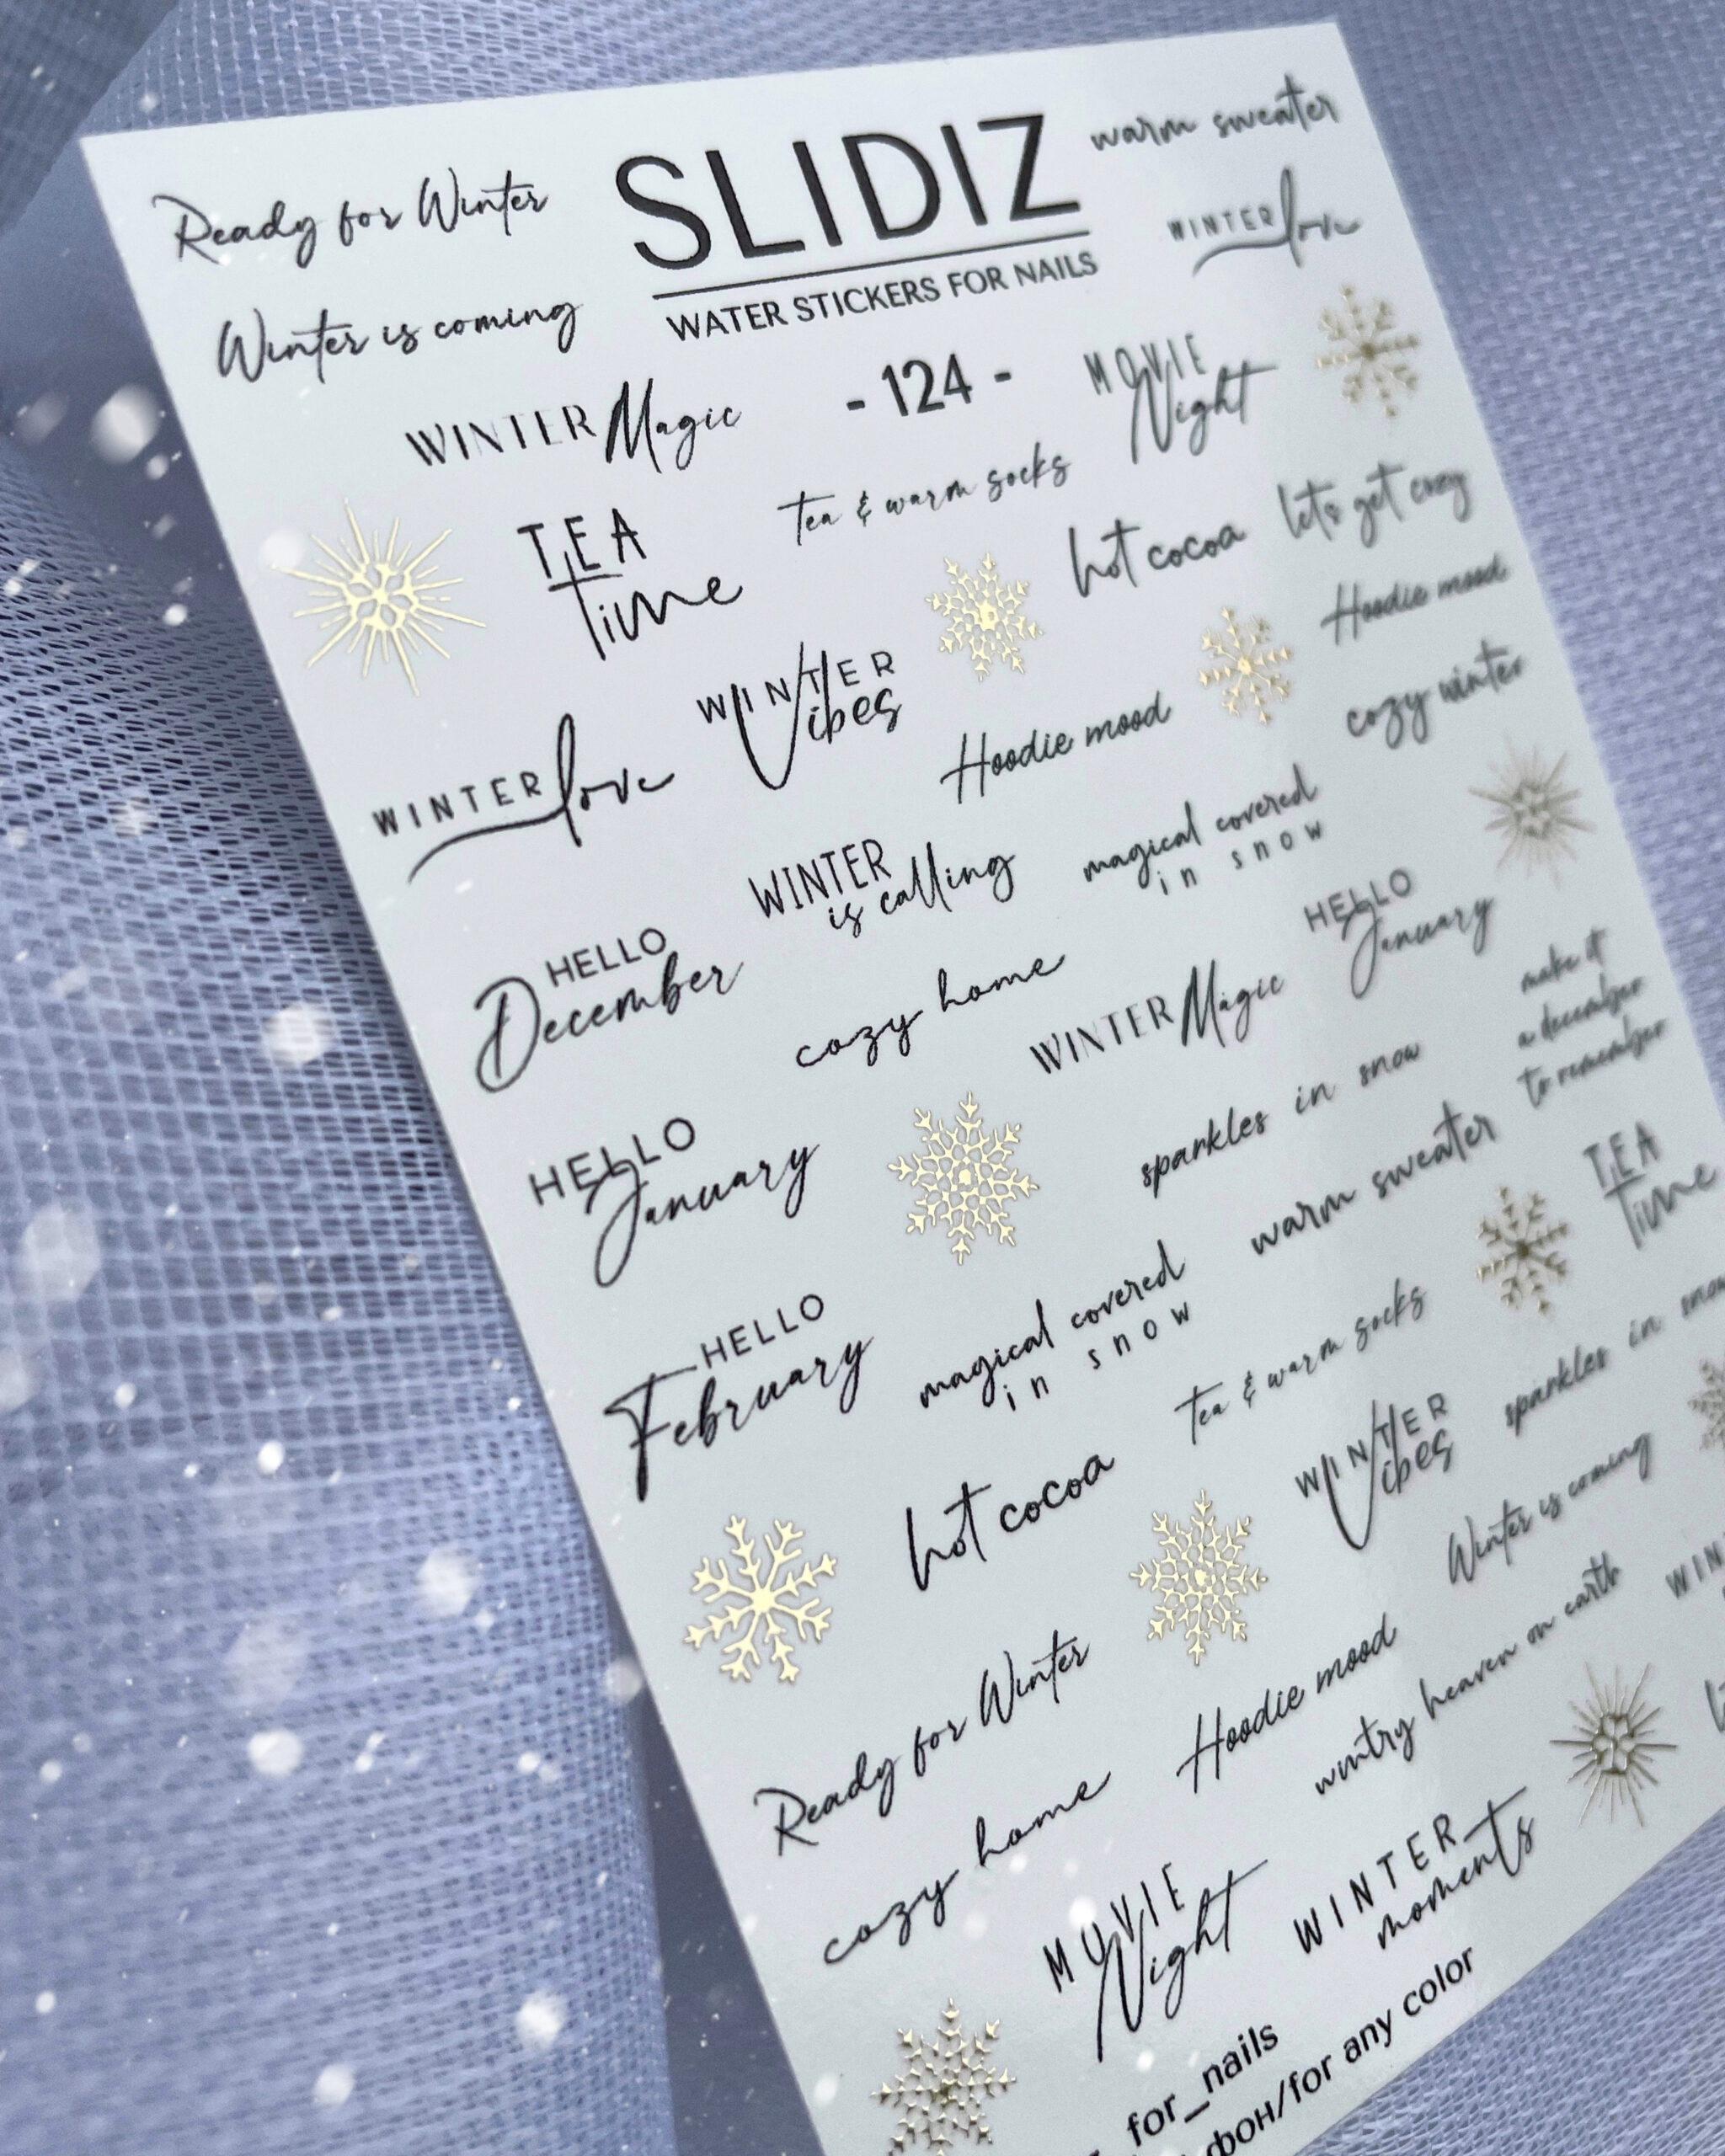 Ready for Winter
SLIDIZ
WATER STICKERS FOR NAILS
warm sweater
WINTER love
Winter is coming
WINTER Magic
- 124 -
MOVIE
Night
TEA
Time
tea & warm socks
hot cocoa
let's get cozy
Hoodie mood
WINTER
Vibes
WINTER love
Hoodie mood
cozy winter
WINTER
is calling
magical covered
in snow
HELLO
December
cozy home
WINTER Magic
HELLO
January
make it
a december
to remember
HELLO
January
sparkles in snow
warm sweater
TEA
Time
HELLO
February
magical covered
in snow
tea & warm socks
sparkles in snow
hot cocoa
WINTER
Vibes
Winter is coming
Ready for Winter
Hoodie mood
wintry heaven on earth
WIN
cozy home
MOVIE
Night
WINTER
moments
for_nails
фон/for any color